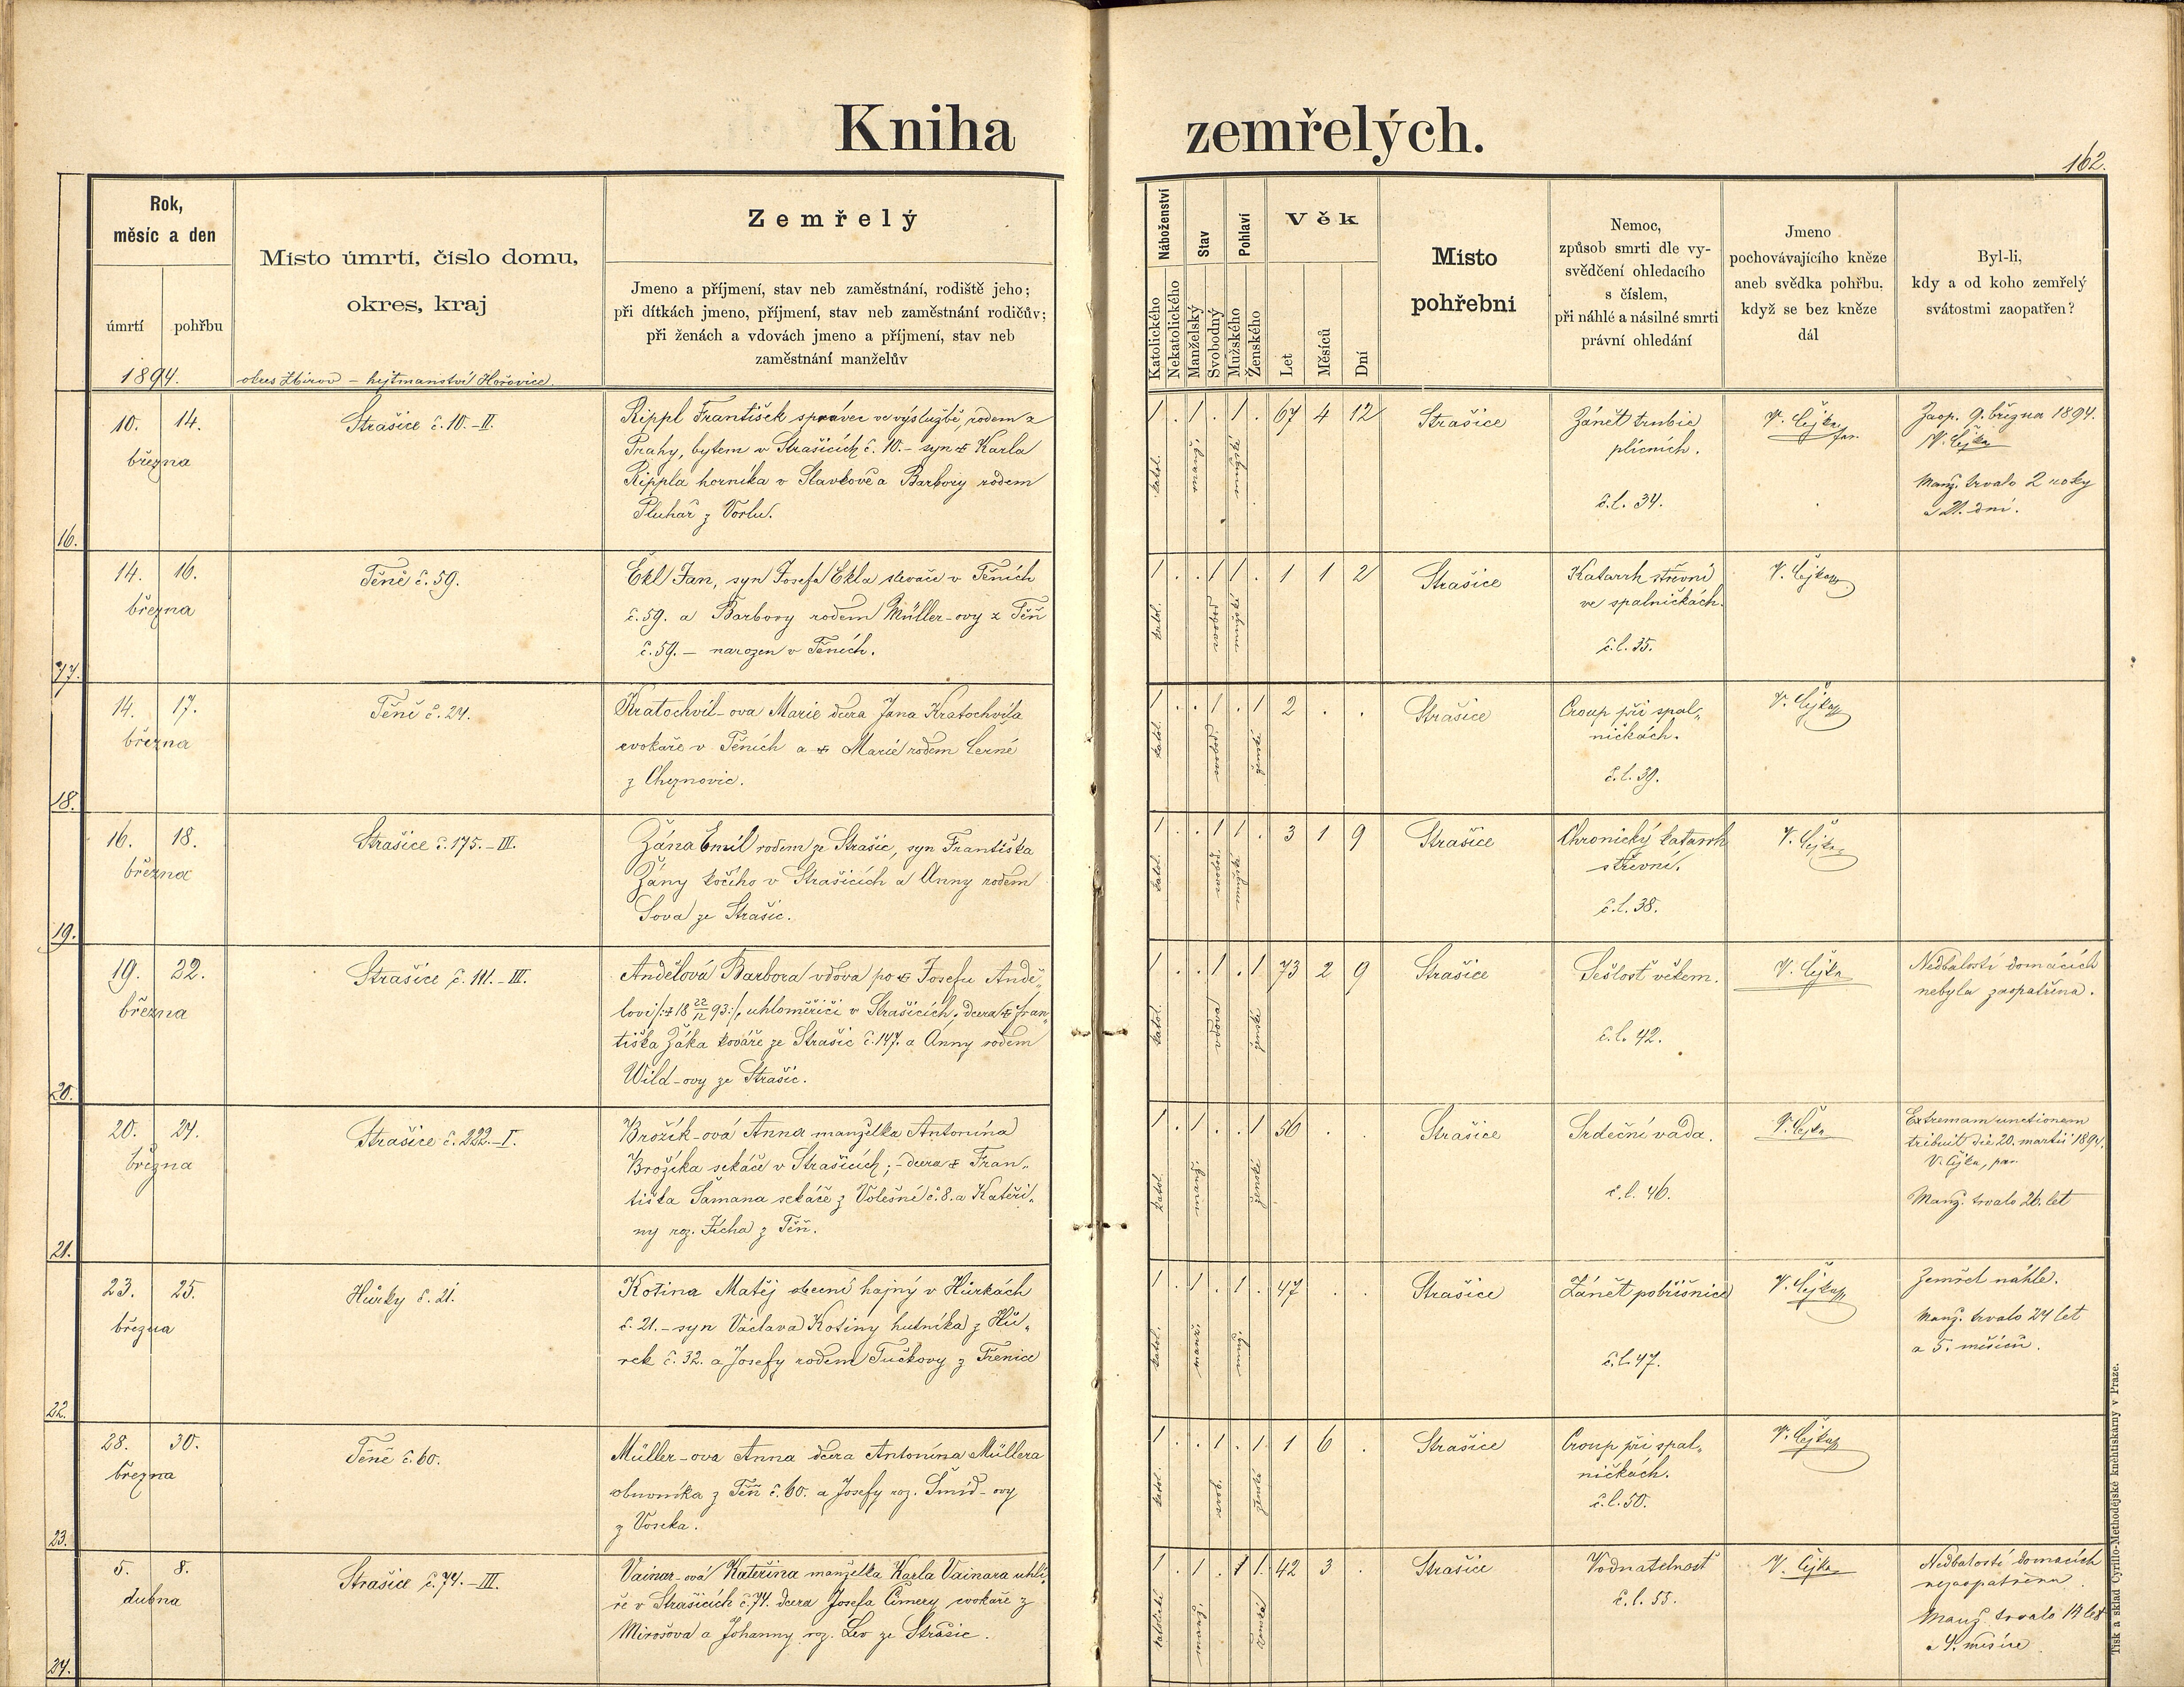 Kniha zemřelých.
162.
Rok,
měsíc a den
úmrtí
pohřbu
1894.
Místo úmrtí, číslo domu,
okres, kraj
okres Zbirov – hejtmanství Hořovice.
Zemřelý
Jmeno a příjmení, stav neb zaměstnání, rodiště jeho;
při dítkách jmeno, příjmení, stav neb zaměstnání rodičův;
při ženách a vdovách jmeno a příjmení, stav neb
zaměstnání manželův
Náboženství
Katolického
Nekatolického
Stav
Manželský
Svobodný
Pohlaví
Mužského
Ženského
Věk
Let
Měsíců
Dní
Místo
pohřební
Nemoc,
způsob smrti dle vy-
svědčení ohledacího
s číslem,
při náhlé a násilné smrti
právní ohledání
Jmeno
pochovávajícího kněze
aneb svědka pohřbu,
když se bez kněze
dál
Byl-li,
kdy a od koho zemřelý
svátostmi zaopatřen?
16.
10. 14.
března
Strašice č. 10.–II.
Rippl František správec ve výslužbě, rodem z
Prahy, bytem v Strašicích č. 10.– syn ☩ Karla
Rippla horníka v Slavkově a Barbory rodem
Pluhař z Vorlu.
1 . 1 . 1 . 67 4 12
katol.
manž.
mužský
Strašice
Zánět trubic
plicních.
č.l. 34.
V. Čejka
far.
Zaop. 9. března 1894.
V. Čejka
Manž. trvalo 2 roky
a 21. dní.
17.
14. 16.
března
Těně č. 59.
Ekl Jan, syn Josefa Ekla slevače v Těních
č. 59. a Barbory rodem Müller-ovy z Těň
č. 59. – narozen v Těních.
1 . . 1 1 . 1 1 2
katol.
svobod.
mužské
Strašice
Katarrh střevní
ve spalničkách.
č.l. 35.
V. Čejka
18.
14. 17.
března
Těně č. 24.
Kratochvíl-ova Marie dcera Jana Kratochvíla
cvokaře v Těních a ☩ Marie rodem Černé
z Cheznovic.
1 . . 1 . 1 2 . .
katol.
svobod.
ženské
Strašice
Croup při spal„
ničkách.
č.l. 39.
V. Čejka
19.
16. 18.
března
Strašice č. 175.–III.
Žána Emil rodem ze Strašic, syn Františka
Žány kočího v Strašicích a Anny rodem
Sova ze Strašic.
1 . . 1 1 . 3 1 9
katol.
svobod.
mužské
Strašice
Chronický katarrh
střevní.
č.l. 38.
V. Čejka
20.
19. 22.
března
Strašice č. 111.–III.
Andělová Barbora vdova po ☩ Josefu Andě„
lovi /:☩ 18 22/12 93:/, uhloměřiči v Strašicích, dcera ☩ Fran„
tiška Žáka kováře ze Strašic č. 147. a Anny rodem
Wild-ovy ze Strašic.
1 . . 1 . 1 73 2 9
katol.
vdova
ženské
Strašice
Sešlost věkem.
č.l. 42.
V. Čejka
Nedbalostí domácích
nebyla zaopatřena.
21.
20. 24.
března
Strašice č. 222.–I.
Brožík-ová Anna manželka Antonína
Brožíka sekáče v Strašicích; – dcera ☩ Fran„
tiška Šamana sekáče z Volešné č. 8. a Kateři„
ny roz. Jícha z Těň.
1 . 1 . . 1 56 . .
katol.
manž.
ženské
Strašice
Srdeční vada.
č.l. 46.
V. Čejka
Extremam unctionem
tribuit die 20. martii 1894.
V. Čejka, par.
Manž. trvalo 26. let
22.
23. 25.
března
Hůrky č. 21.
Kotina Matěj obecní hajný v Hůrkách
č. 21. – syn Václava Kotiny hutníka z Hů„
rek č. 32. a Josefy rodem Tučkovy z Těnice
1 . 1 . 1 . 47 . .
katol.
manž.
muž.
Strašice
Zánět pobřišnice
č.l. 47.
V. Čejka
Zemřel náhle.
Manž. trvalo 24 let
a 5. měsíců.
23.
28. 30.
března
Těně č. 60.
Müller-ova Anna dcera Antonína Müllera
obuvníka z Těň č. 60. a Josefy roz. Šmíd-ovy
z Voseka.
1 . . 1 . 1 1 6 .
katol.
svob.
ženské
Strašice
Croup při spal„
ničkách.
č.l. 50.
V. Čejka
24.
5. 8.
dubna
Strašice č. 74.–III.
Vainar-ová Kateřina manželka Karla Vainara uhlí„
ře v Strašicích č. 74. dcera Josefa Čimery cvokaře z
Mirošova a Johanny roz. Lev ze Strašic.
1 . 1 . 1 1. 42 3 .
katolické
manž.
ženské
Strašice
Vodnatelnost
č.l. 55.
V. Čejka
Nedbalostí domácích
nezaopatřena.
Manž. trvalo 14 let
a 4. měsíce
Tisk a sklad Cyrillo-Methodějské kněhtiskárny v Praze.